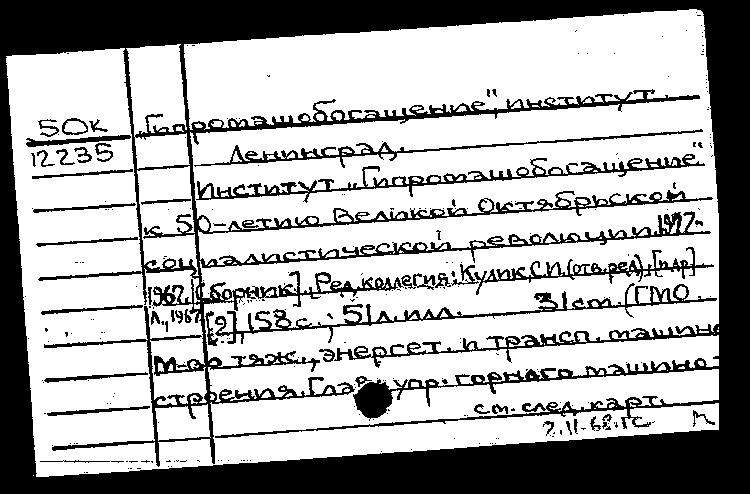 50к
12235
„Гипромашобогащение", институт.
Ленинград.
Институт „Гипромашобогащение"
к 50-летию Великой Октябрьской
социалистической революции 1917-
1967. [Сборник]. Ред. коллегия: Кулик, С.П. (отв. ред), [и др]
Л., 1967 [2], 158 с.; 51 л. илл. 31 cm. (ГМО.
М-во тяж., энергет. и трансп. машино-
строения. Глав. упр. горного машино-
см. след. карт.
2.11.68.